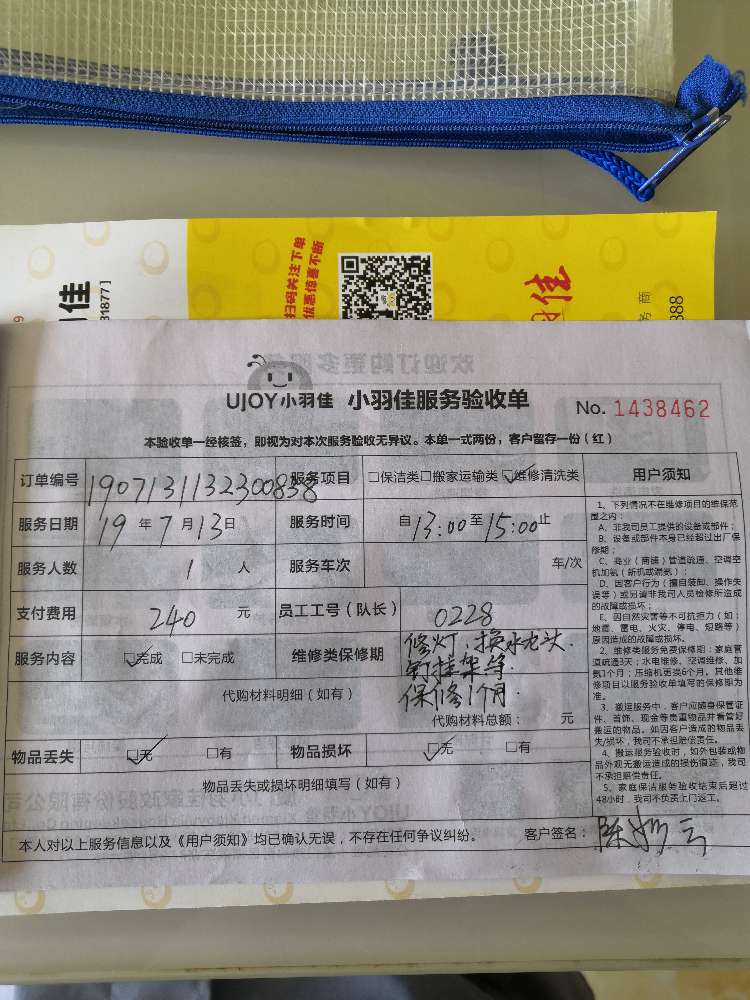 佳
318771
扫码关注下单
优惠惊喜不断
佳
务 商
888
欢迎订购更多服务
UJOY小羽佳 小羽佳服务验收单 No. 1438462
本验收单一经核签，即视为对本次服务验收无异议。本单一式两份，客户留存一份（红）
订单编号 1907131132300838 服务项目 □保洁类□搬家运输类☑维修清洗类 用户须知
服务日期 19 年 7 月 13 日 服务时间 自 13:00 至 15:00 止
服务人数 1 人 服务车次 车/次
支付费用 240 元 员工工号（队长） 0228
服务内容 ☑完成 □未完成 维修类保修期 修灯，换水龙头.
钉挂架等.
保修1个月.
代购材料明细（如有）
代购材料总额： 元
物品丢失 ☑无 □有 物品损坏 ☑无 □有
物品丢失或损坏明细填写（如有）
本人对以上服务信息以及《用户须知》均已确认无误，不存在任何争议纠纷。 客户签名：陈 云
1、下列情况不在维修项目的维保范
围之内：
A、非我司员工提供的设备或部件；
B、设备或部件本身已经超过出厂保
修期；
C、商业（商铺）管道疏通、空调空
机加氨（新机或漏氨）；
D、因客户行为（擅自装卸、操作失
误等）或另请非我司人员检修所造成
的故障或损坏；
E、因自然灾害等不可抗拒力（如：
地震、雷电、火灾、停电、短路等）
原因造成的故障或损坏。
2、维修类服务免费保修期：家庭管
道疏通3天；水电维修、空调维修、加
氨1个月；压缩机更换6个月。其他维
修项目以服务验收单填写的保修期为
准。
3、搬运服务中，客户应随身保管证
件、首饰、现金等贵重物品并看管好
搬运的物品。如因客户造成的物品丢
失/损坏，我司不承担赔偿责任。
4、搬运服务验收时，如外包装或物
品外观无搬运造成的损伤痕迹，我司
不承担赔偿责任。
5、家庭保洁服务验收结束后超过
48小时，我司不负责上门返工。